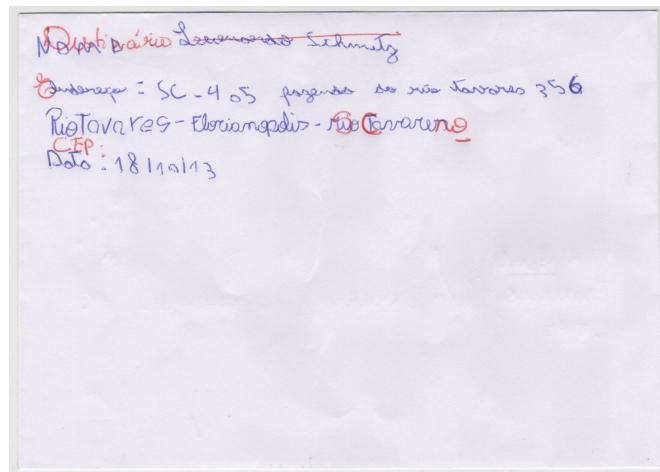 Destinário Leeonardo Schmitz
Endereço = SC-405 fazenda do rio tavares 356
Rio Tavares - Florianopolis - SC
CEP:
Data: 18/10/13